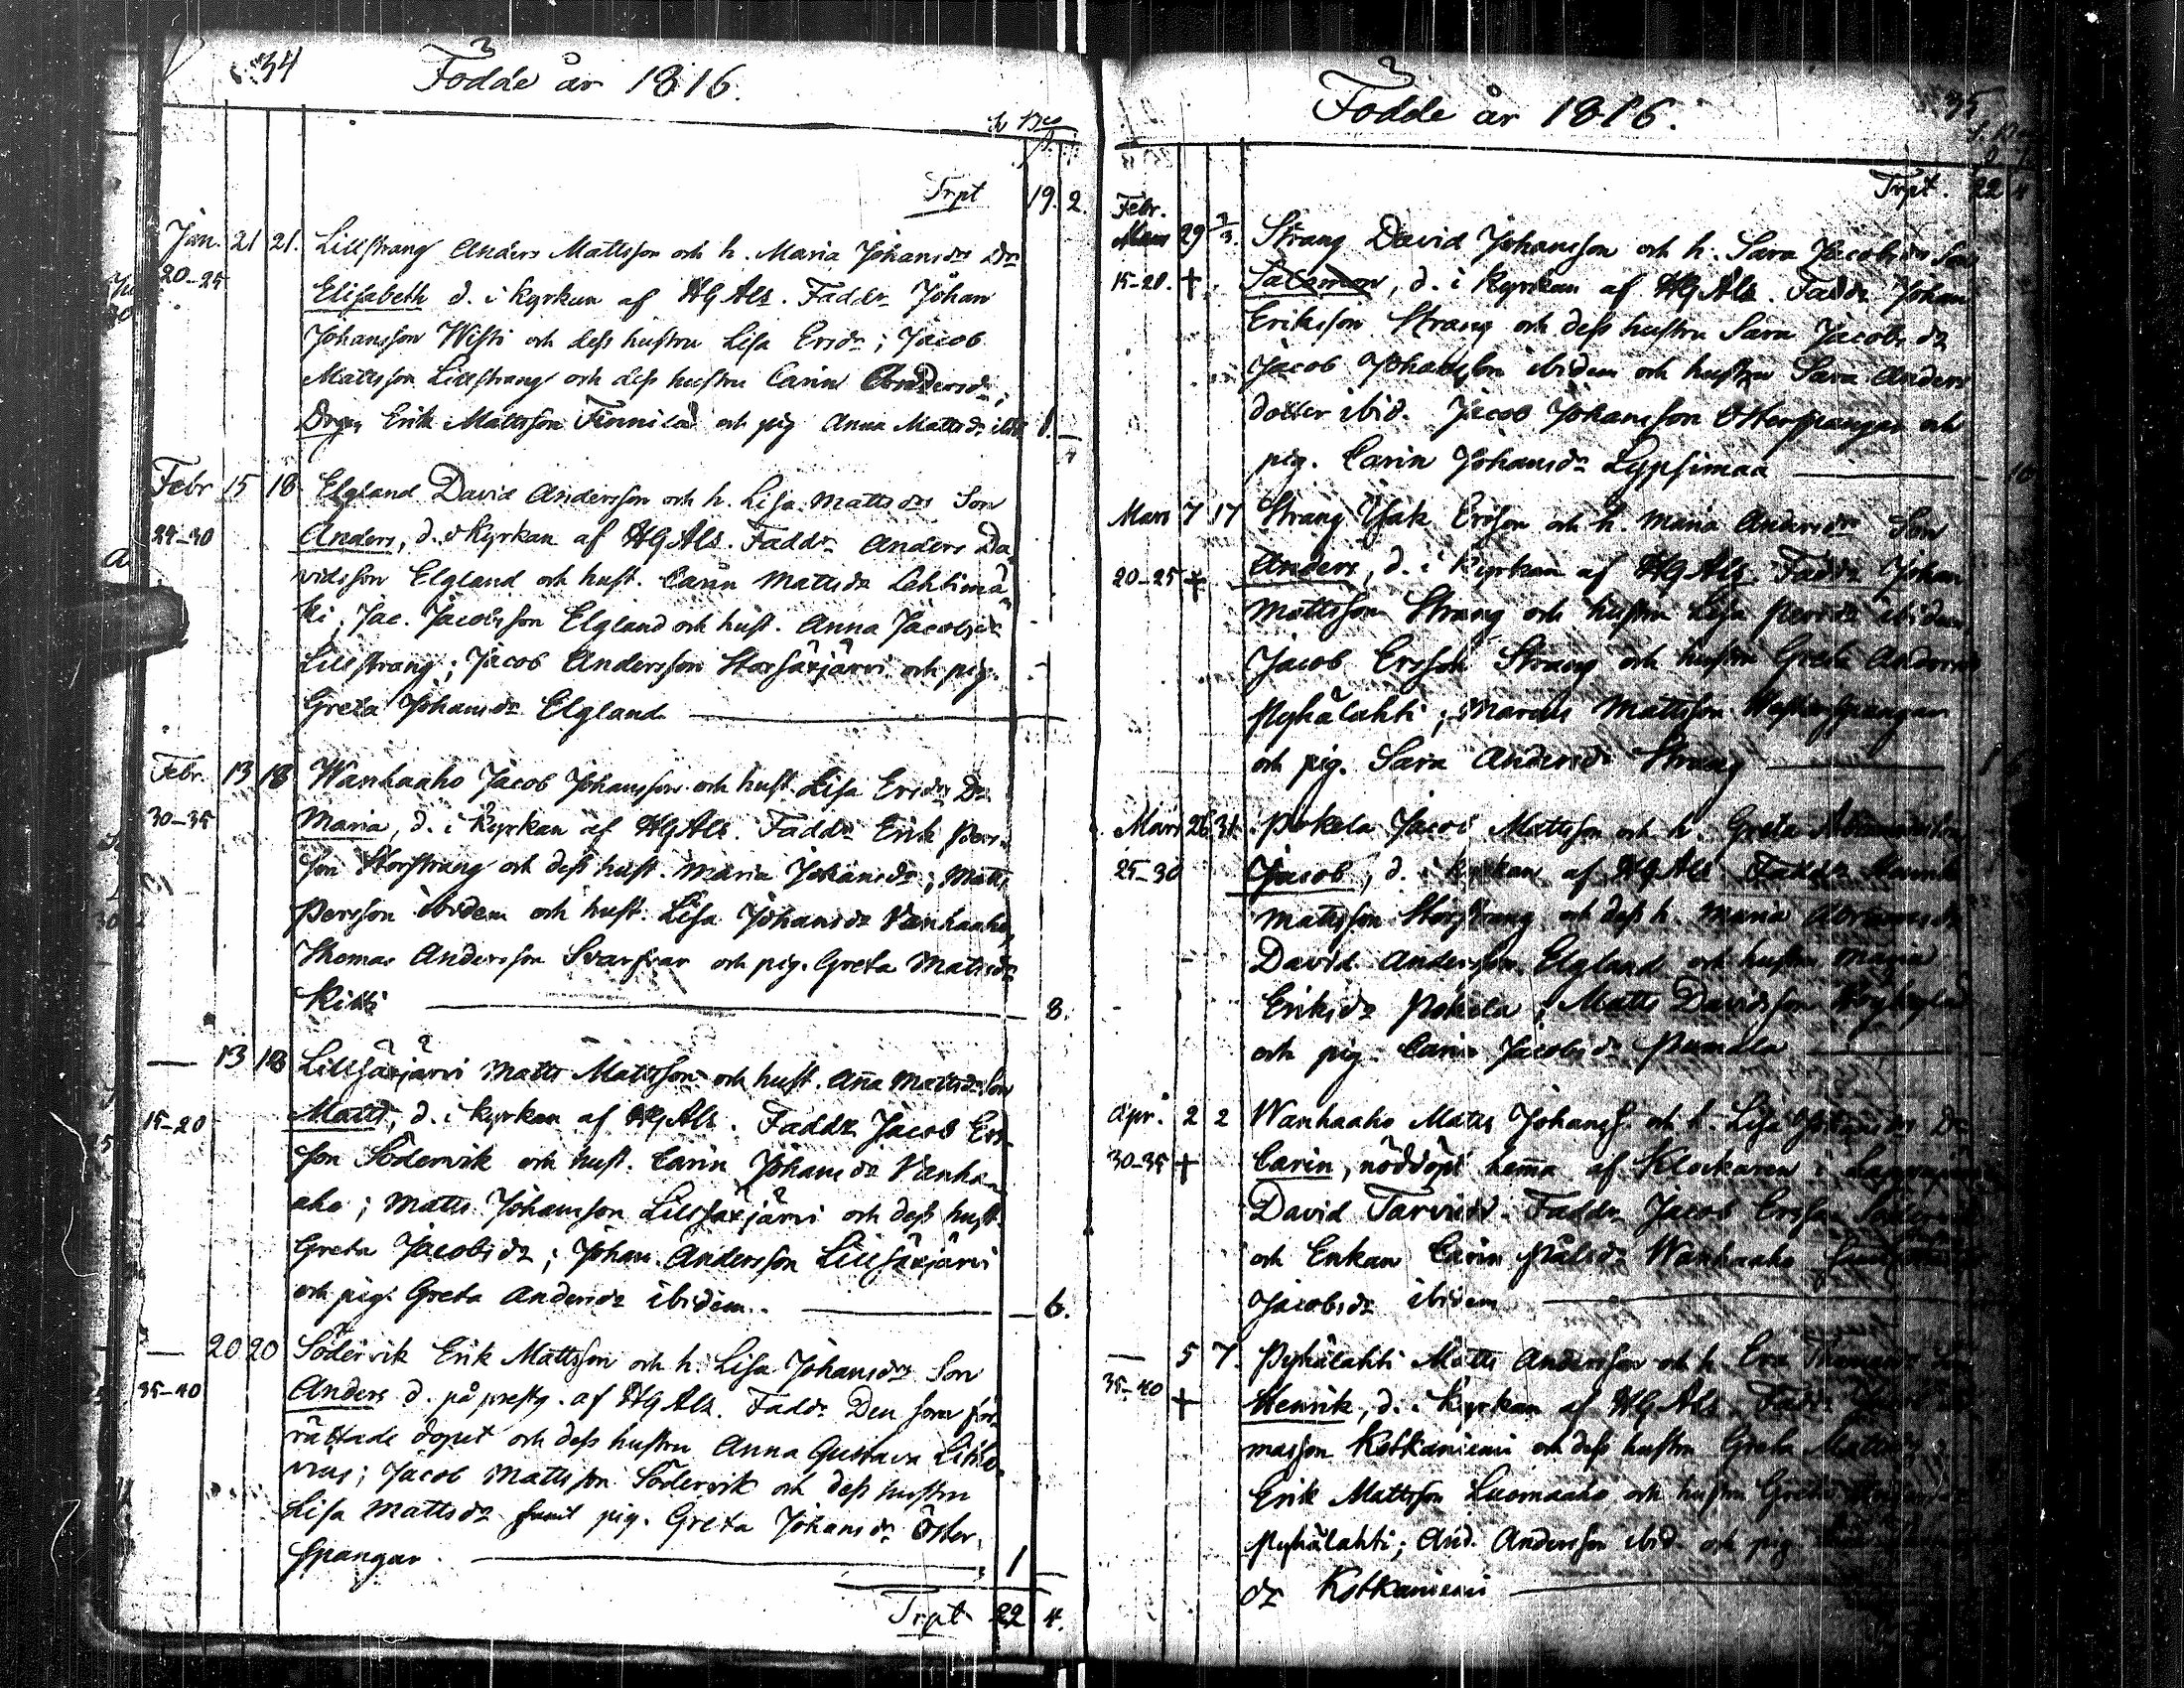 34
Födde år 1816.
Trpt 19. 2.
Jan. 21 21. Lillstrang Anders Mattsson och h. Maria Johansdr Dr
20-25 Elisabeth d. i kyrkan af HG Als. Faddr Johan
Johansson Wisti och dess hustru Lisa Ersdr; Jacob
Mattsson Lillstrang och dess hustru Carin Andersdr;
Drgn Erik Mattsson och pig Anna Mattsdr
Febr 15 18 Elgland David Andersson och h. Lisa Mattsdr Son
25-30 Anders, d. i kyrkan af HG Als. Faddr Anders Da-
vidsson Elgland och hust. Carin Mattsdr Lahtimä-
ki; Jac. Jacobsson Elgland och hust. Anna Jacobsdr
Lillstrang; Jacob Andersson Storsäxjärvi och pig.
Greta Johansdr Elgland
Febr. 13 18 Wanhaaho Jacob Johansson och hust. Lisa Ersdr Dr
30-35 Maria, d. i kyrkan af HG Als. Faddr Erik Pers-
son Storstrang och dess hust. Maria Johansdr; Matts
Persson ibidem och hust. Lisa Johansdr Vanhaaho,
Thomas Andersson Svarfvar och pig. Greta Mattsdr
Kitti 8.
— 13 18 Lillsäxjärvi Matts Mattsson och hust. Anna Mattsdr Son
15-20 Matts, d. i kyrkan af HG Als. Faddr Jacob Ers-
son Södervik och hust. Carin Johansdr Vanha-
aho; Matts Johansson Lillsäxjärvi och dess hust.
Greta Jacobsdr; Johan Andersson Lillsäxjärvi
och pig. Greta Andersdr ibidem. 6.
— 20 20 Södervik Erik Mattsson och h. Lisa Johansdr Son
35-40 Anders d. på prestg. af HG Als. Faddr Den som för-
rättade dopet och dess hustru Anna Gustava
Jacob Mattsson Södervik och dess hustru
Lisa Mattsdr samt pig. Greta Johansdr Öster-
spangar. 1
Trpt 22 4.
35
Födde år 1816.
Trpt. 22 4
Febr.
Mars 29 2/3. Strang David Johansson och h. Sara Jacobsdr Son
15-20. + Salomon, d. i kyrkan af HG Als. Faddr Johan
Eriksson Strang och dess hustru Sara Jacobsdr
Jacob Johansson ibidem och hustru Sara Anders
dotter ibid. Jacob Johansson Österspangar och
pig. Carin Johansdr Lypsimaa 10
Mars 7 17 Strang Isak Ersson och h. Maria Andersdr Son
20-25 + Anders, d. i kyrkan af HG Als. Faddr Johan
Mattsson Strang och hustru Lisa Persdr ibidem,
Jacob Ersson Strang och hustru Greta Andersdr
Pyhälahti; Marcus Mattsson Westerspangar
och pig. Sara Andersdr Strang 1
Mars 26 31. Pokela Jacob Mattsson och h. Greta
25-30 Jacob, d. i kyrkan af HG Als. Faddr Henrik
Mattsson Storstrang och dess h. Maria Abramsdr
David Andersson Elgland och hustru Maria
Eriksdr Pokela; Matts Davidsson
och pig. Carin Jacobsdr Pumala
Apr. 2 2 Wanhaaho Matts Johanss. och h. Lisa Dr
30-35 + Carin, nöddöpt hemma af Klockaren i
David Tarvus. Faddr Jacob Ersson
och Enkan Carin Pålsdr Wanhaaho
Jacobsdr ibidem
— 5 7. Pyhälahti Matts Andersson och h. Eva
35-40 + Henrik, d. i kyrkan af HG Als. Faddr
masson Kotkaniemi och dess hustru Greta Mattsdr;
Erik Mattsson Luomaaho och hustru Greta
Pyhälahti; And. Andersson ibid. och pig.
dr Kotkaniemi